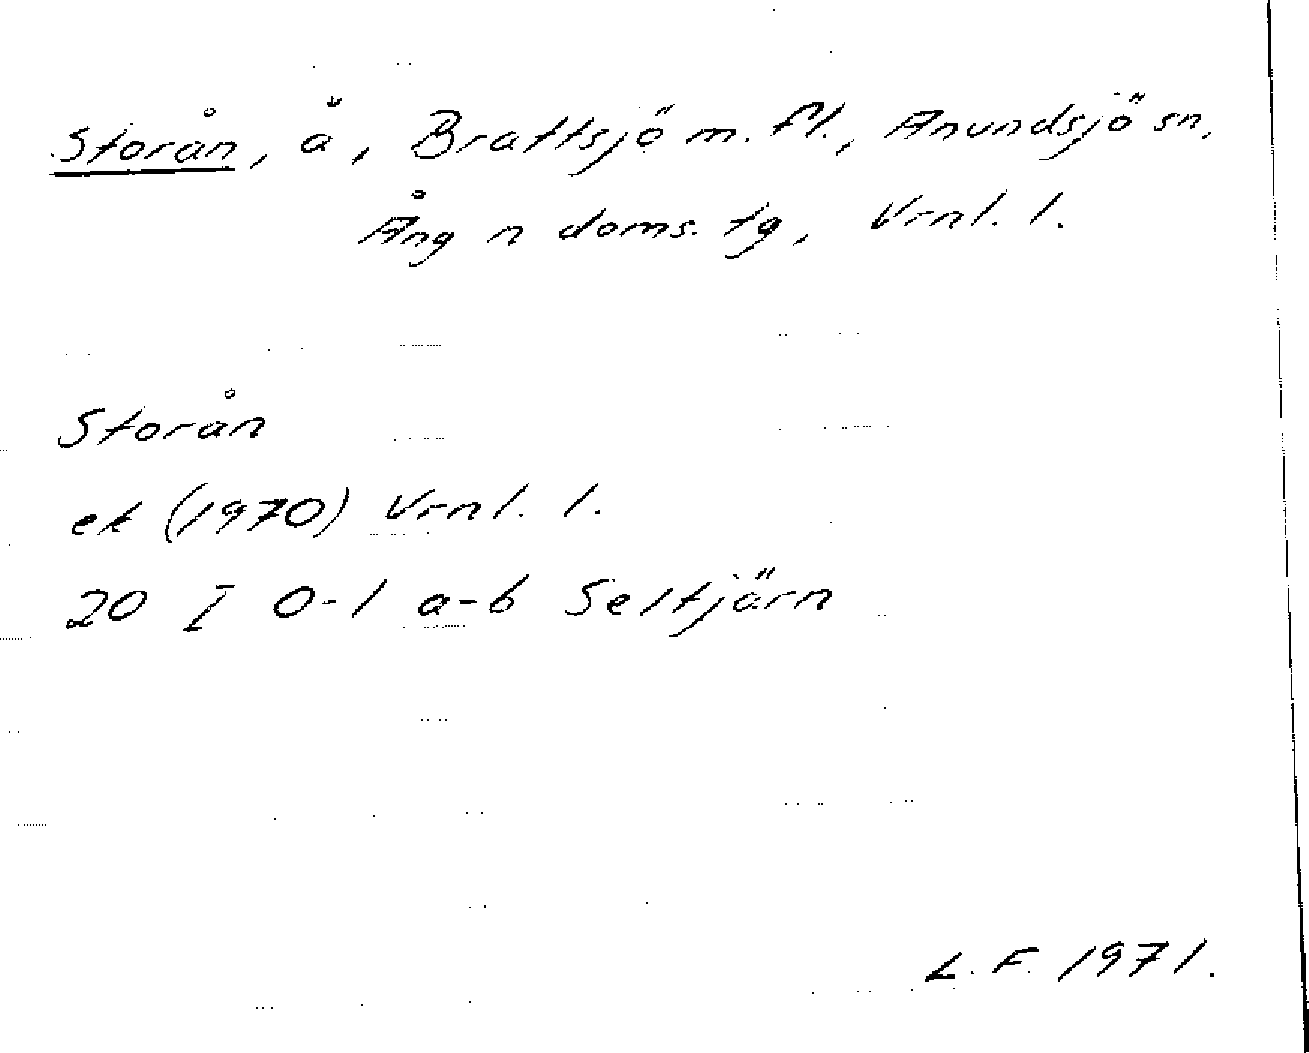 Storån, å, Brattsjö m. fl., Anundsjö sn,
Ång n doms. tg, Vrnl. l.
Storån
ek (1970) Vrnl. l.
20 I 0-1 a-b Seltjärn
L. F. 1971.